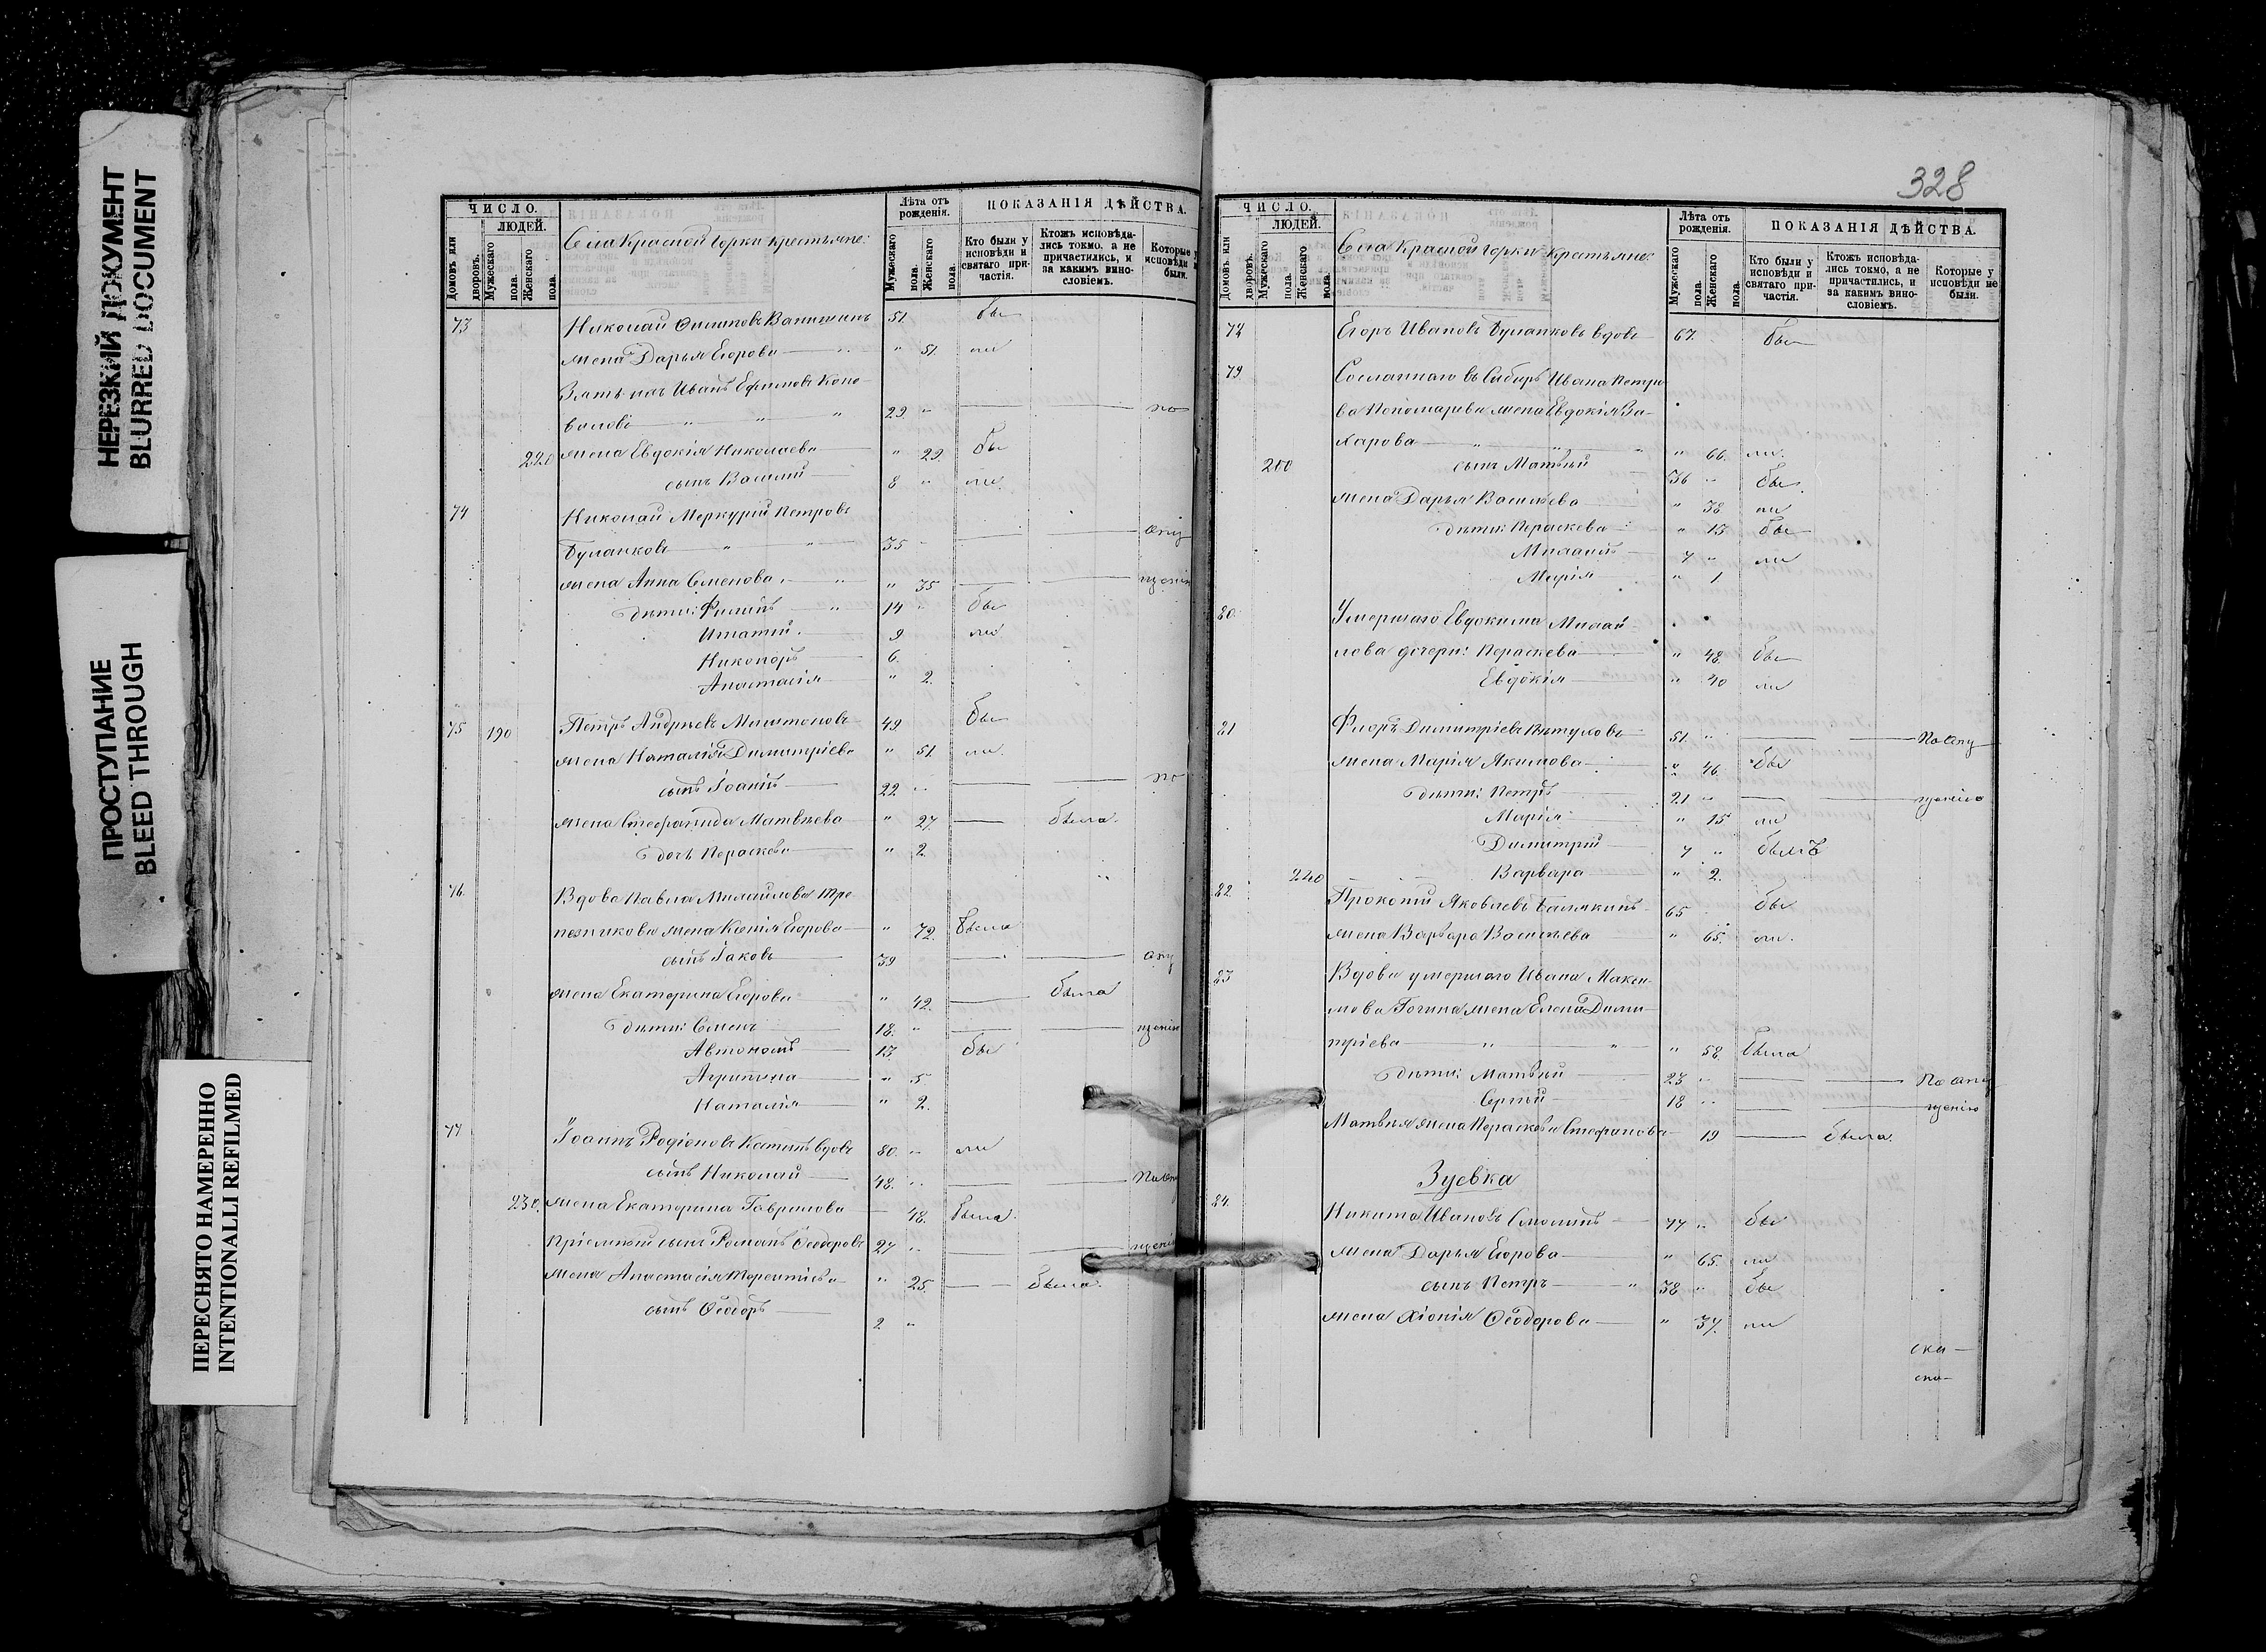 НЕРЕЗКИЙ ДОКУМЕНТ
BLURRED DOCUMENT
ПРОСТУПАНИЕ
BLEED THROUGH
ПЕРЕСНЯТО НАМЕРЕННО
INTENTIONALLI REFILMED
ЧИСЛО.
ЛЮДЕЙ.
Домовъ или дворовъ.
Мужескаго пола.
Женскаго пола.
Села Красной Горки крестьяне:
Лѣта отъ рожденія.
Мужескаго пола.
Женскаго пола.
ПОКАЗАНІЯ ДѢЙСТВА.
Кто были у исповѣди и святаго причастія.
Ктожъ исповѣдались токмо, а не причастились, и за какимъ винословіемъ.
Которые у исповѣди
были.
73 Николай 51. бы
жена Дарья Егорова " 51. ли
Зять ихъ Иванъ Ефимовъ Коно-
валовъ " " 29. " по
220 жена Евдокія Николаева " 29. бы
сынъ Василій 8 " ли
74 Николай Меркурій Петровъ
Буланковъ " " 35 " опу
жена Анна Семенова " " 35 щенію
дѣти: Филиппъ " 14 " бы
Игнатій 9 ли
Никоноръ 6.
Анастасія " 2.
75 190 Петръ Андреевъ 49 бы
жена Наталія Димитріева " 51. ли
сынъ Іоаннъ 22 " по
жена Степанида Матвѣева " 27. была.
дочь Параскева " 2.
76. Вдова Павла Михайлова Тре-
пезникова жена Ксенія Егорова " 72. была
сынъ Іаковъ 39 опу
жена Екатерина Егорова " 42. была
дѣти: Семенъ 18. " щенію
Автономъ 13. бы
Агрипина " 5
Наталія " 2.
77 Іоаннъ Родіоновъ вдовъ 80. " ли
сынъ Николай 48. " По опу
230. жена Екатерина Гаврилова 48. была.
Пріемный сынъ Романъ Ѳеодоровъ 27 " щенію
жена Анастасія Терентьева " 25. была.
сынъ Ѳеодоръ
2 "
328
ЧИСЛО.
ЛЮДЕЙ.
Домовъ или дворовъ.
Мужескаго пола.
Женскаго пола.
Села Красной Горки крестьяне:
Лѣта отъ рожденія.
Мужескаго пола.
Женскаго пола.
ПОКАЗАНІЯ ДѢЙСТВА.
Кто были у исповѣди и святаго причастія.
Ктожъ исповѣдались токмо, а не причастились, и за какимъ винословіемъ.
Которые у исповѣди не были.
78 Егоръ Ивановъ Буланковъ вдовъ 67. бы
79 Сосланнаго въ Сибирь Ивана Петро-
ва Пономарева жена Евдокія За-
харова " " " " 66. ли.
200 сынъ Матвѣй 36 " бы.
жена Дарья Васильева " 38 ли
дѣти: Параскева " 13. бы
7 " ли
Марія " 1
80. Умершаго Евдокима Михай-
лова дочери: Параскева " 48. бы
Евдокія " 40 ли
81 Флоръ Димитріевъ Пѣтуховъ 51. " По опу
жена Марія Якимова " 46. бы
дѣти: Петръ 21 " щенію
Марія " 15 ли
Димитрій 7 " былъ
240 Варвара " 2.
82. Прокопій Яковлевъ 65 бы
жена Варвара Васильева " 65. ли.
83 Вдова умершаго Ивана Макси-
мова жена Елена Дими-
тріева " " " 58. была
дѣти: Матвѣй 23 " По опу
Сергѣй 18 " щенію
Матвѣя жена Параскева Стефанова 19 была.
Зуевка
84. Никита Ивановъ 77 " бы
жена Дарья Егорова " 65. ли
сынъ Петръ " 38 " бы
жена Хіонія Ѳеодорова " 37. ли